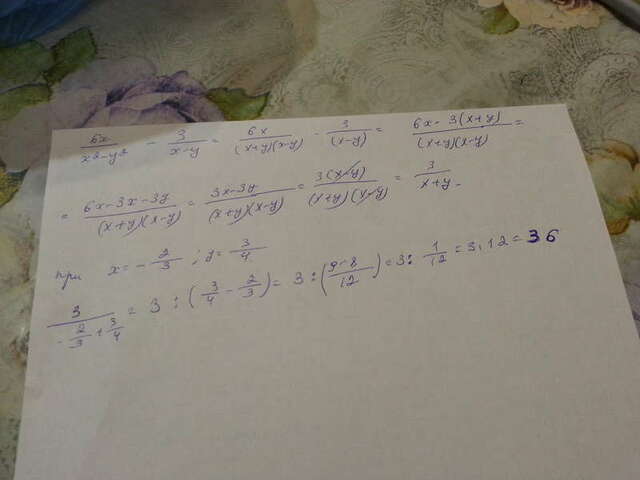 6x/(x²-y²) - 3/(x-y) = 6x/((x+y)(x-y)) - 3/(x-y) = (6x - 3(x+y))/((x+y)(x-y)) =
= (6x-3x-3y)/((x+y)(x-y)) = (3x-3y)/((x+y)(x-y)) = 3(x-y)/((x+y)(x-y)) = 3/(x+y).
при x = -2/3 ; y = 3/4
3/(-2/3 + 3/4) = 3 : (3/4 - 2/3) = 3 : ((9-8)/12) = 3 : 1/12 = 3·12 = 36